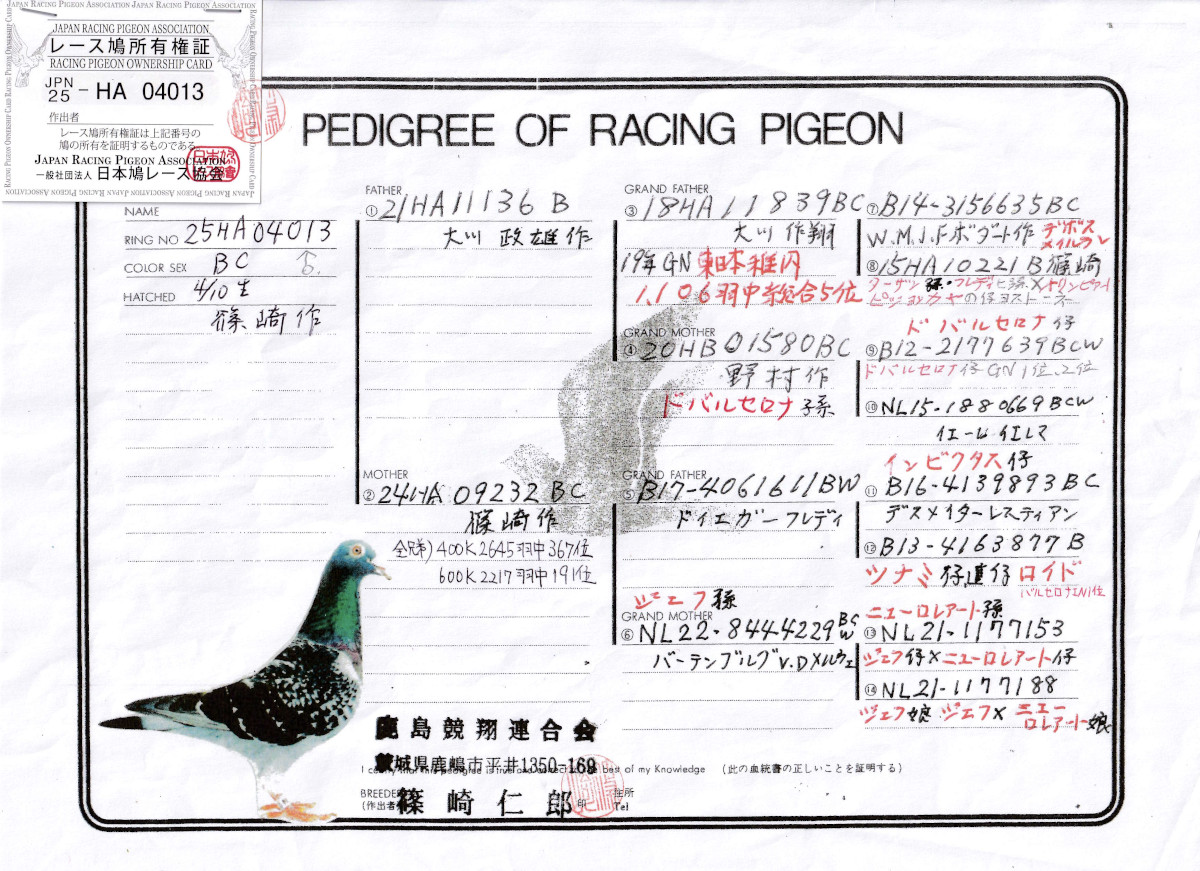 JAPAN RACING PIGEON ASSOCIATION
レース鳩所有権証
RACING PIGEON OWNERSHIP CARD
JPN
25 - HA 04013
作出者
レース鳩所有権証は上記番号の
鳩の所有を証明するものである
JAPAN RACING PIGEON ASSOCIATION
一般社団法人 日本鳩レース協会
PEDIGREE OF RACING PIGEON
NAME
RING NO 25HA04013
COLOR SEX BC ♂
HATCHED 4/10生
篠崎作
FATHER
①21HA11136 B
大川 政雄作
MOTHER
②24HA 09232 BC
篠崎作
全兄弟)400K2645羽中367位
600K2217羽中191位
GRAND FATHER
③18HA11839BC
大川 作翔
19年GN東日本稚内
1,106羽中総合5位
GRAND MOTHER
④20HB01580BC
野村作
ドバルセロナ孫
GRAND FATHER
⑤B17-4061611BW
ドイエガーフレディ
ジェフ孫
GRAND MOTHER
⑥NL22-8444229BCW
バーテンブルグV.D
⑦B14-3156635BC
W.M.J.Fボダート作
⑧15HA10221B篠崎
ドバルセロナ仔
⑨B12-2177639BCW
ドバルセロナ仔GN1位、2位
⑩NL15-1880669BCW
インビクタス仔
⑪B16-4139893BC
デスメイターレスティアン
⑫B13-4163877B
ツナミ 仔直仔 ロイド
バルセロナIN1位
ニューロレアート孫
⑬NL21-1177153
ジェフ仔×ニューロレアート仔
⑭NL21-1177188
ジェフ娘 ジェフ×ニューロレアート娘
鹿島競翔連合会
茨城県鹿嶋市平井1350-169
I certify that this pedigree is true and correct to the best of my Knowledge (此の血統書の正しいことを証明する)
BREEDER
(作出者) 篠崎仁郎 印
住所
Tel